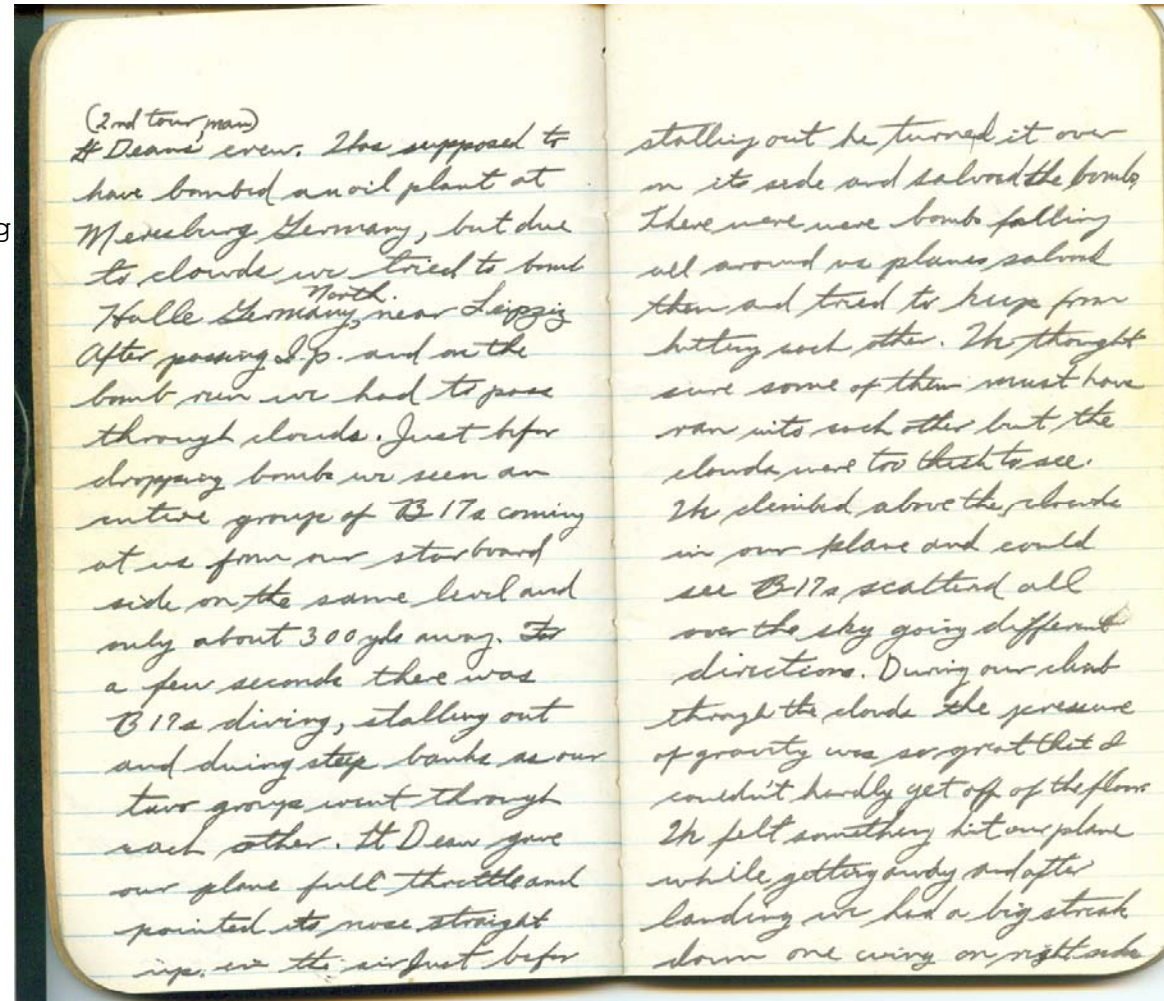 (2nd tour man)
Lt Deans crew. Was supposed to
have bombed an oil plant at
Meresburg Germany, but due
to clouds we tried to bomb
North.
Halle Germany, near Leipzig
After passing I.p. and on the
bomb run we had to pass
through clouds. Just befor
dropping bombs we seen an
entire group of B-17s coming
at us from our starboard
side on the same level and
only about 300 yds away. For
a few seconds there was
B17s diving, stalling out
and duing steep banks as our
two groups went through
each other. Lt Dean gave
our plane full throttle and
pointed its nose straight
up in the air Just befor
g
stalling out he turned it over
on its side and salvoed the bombs.
There were were bombs falling
all around us planes salvoed
them and tried to keep from
hitting each other. We thought
sure some of them must have
ran into each other but the
clouds were too thick to see.
We climbed above the clouds
in our plane and could
see B-17s scatterd all
over the sky going different
directions. During our climb
through the clouds the pressure
of gravity was so great that I
couldn't hardly get off of the floor.
We felt something hit our plane
while getting away and after
landing we had a big streak
down one wing on right side